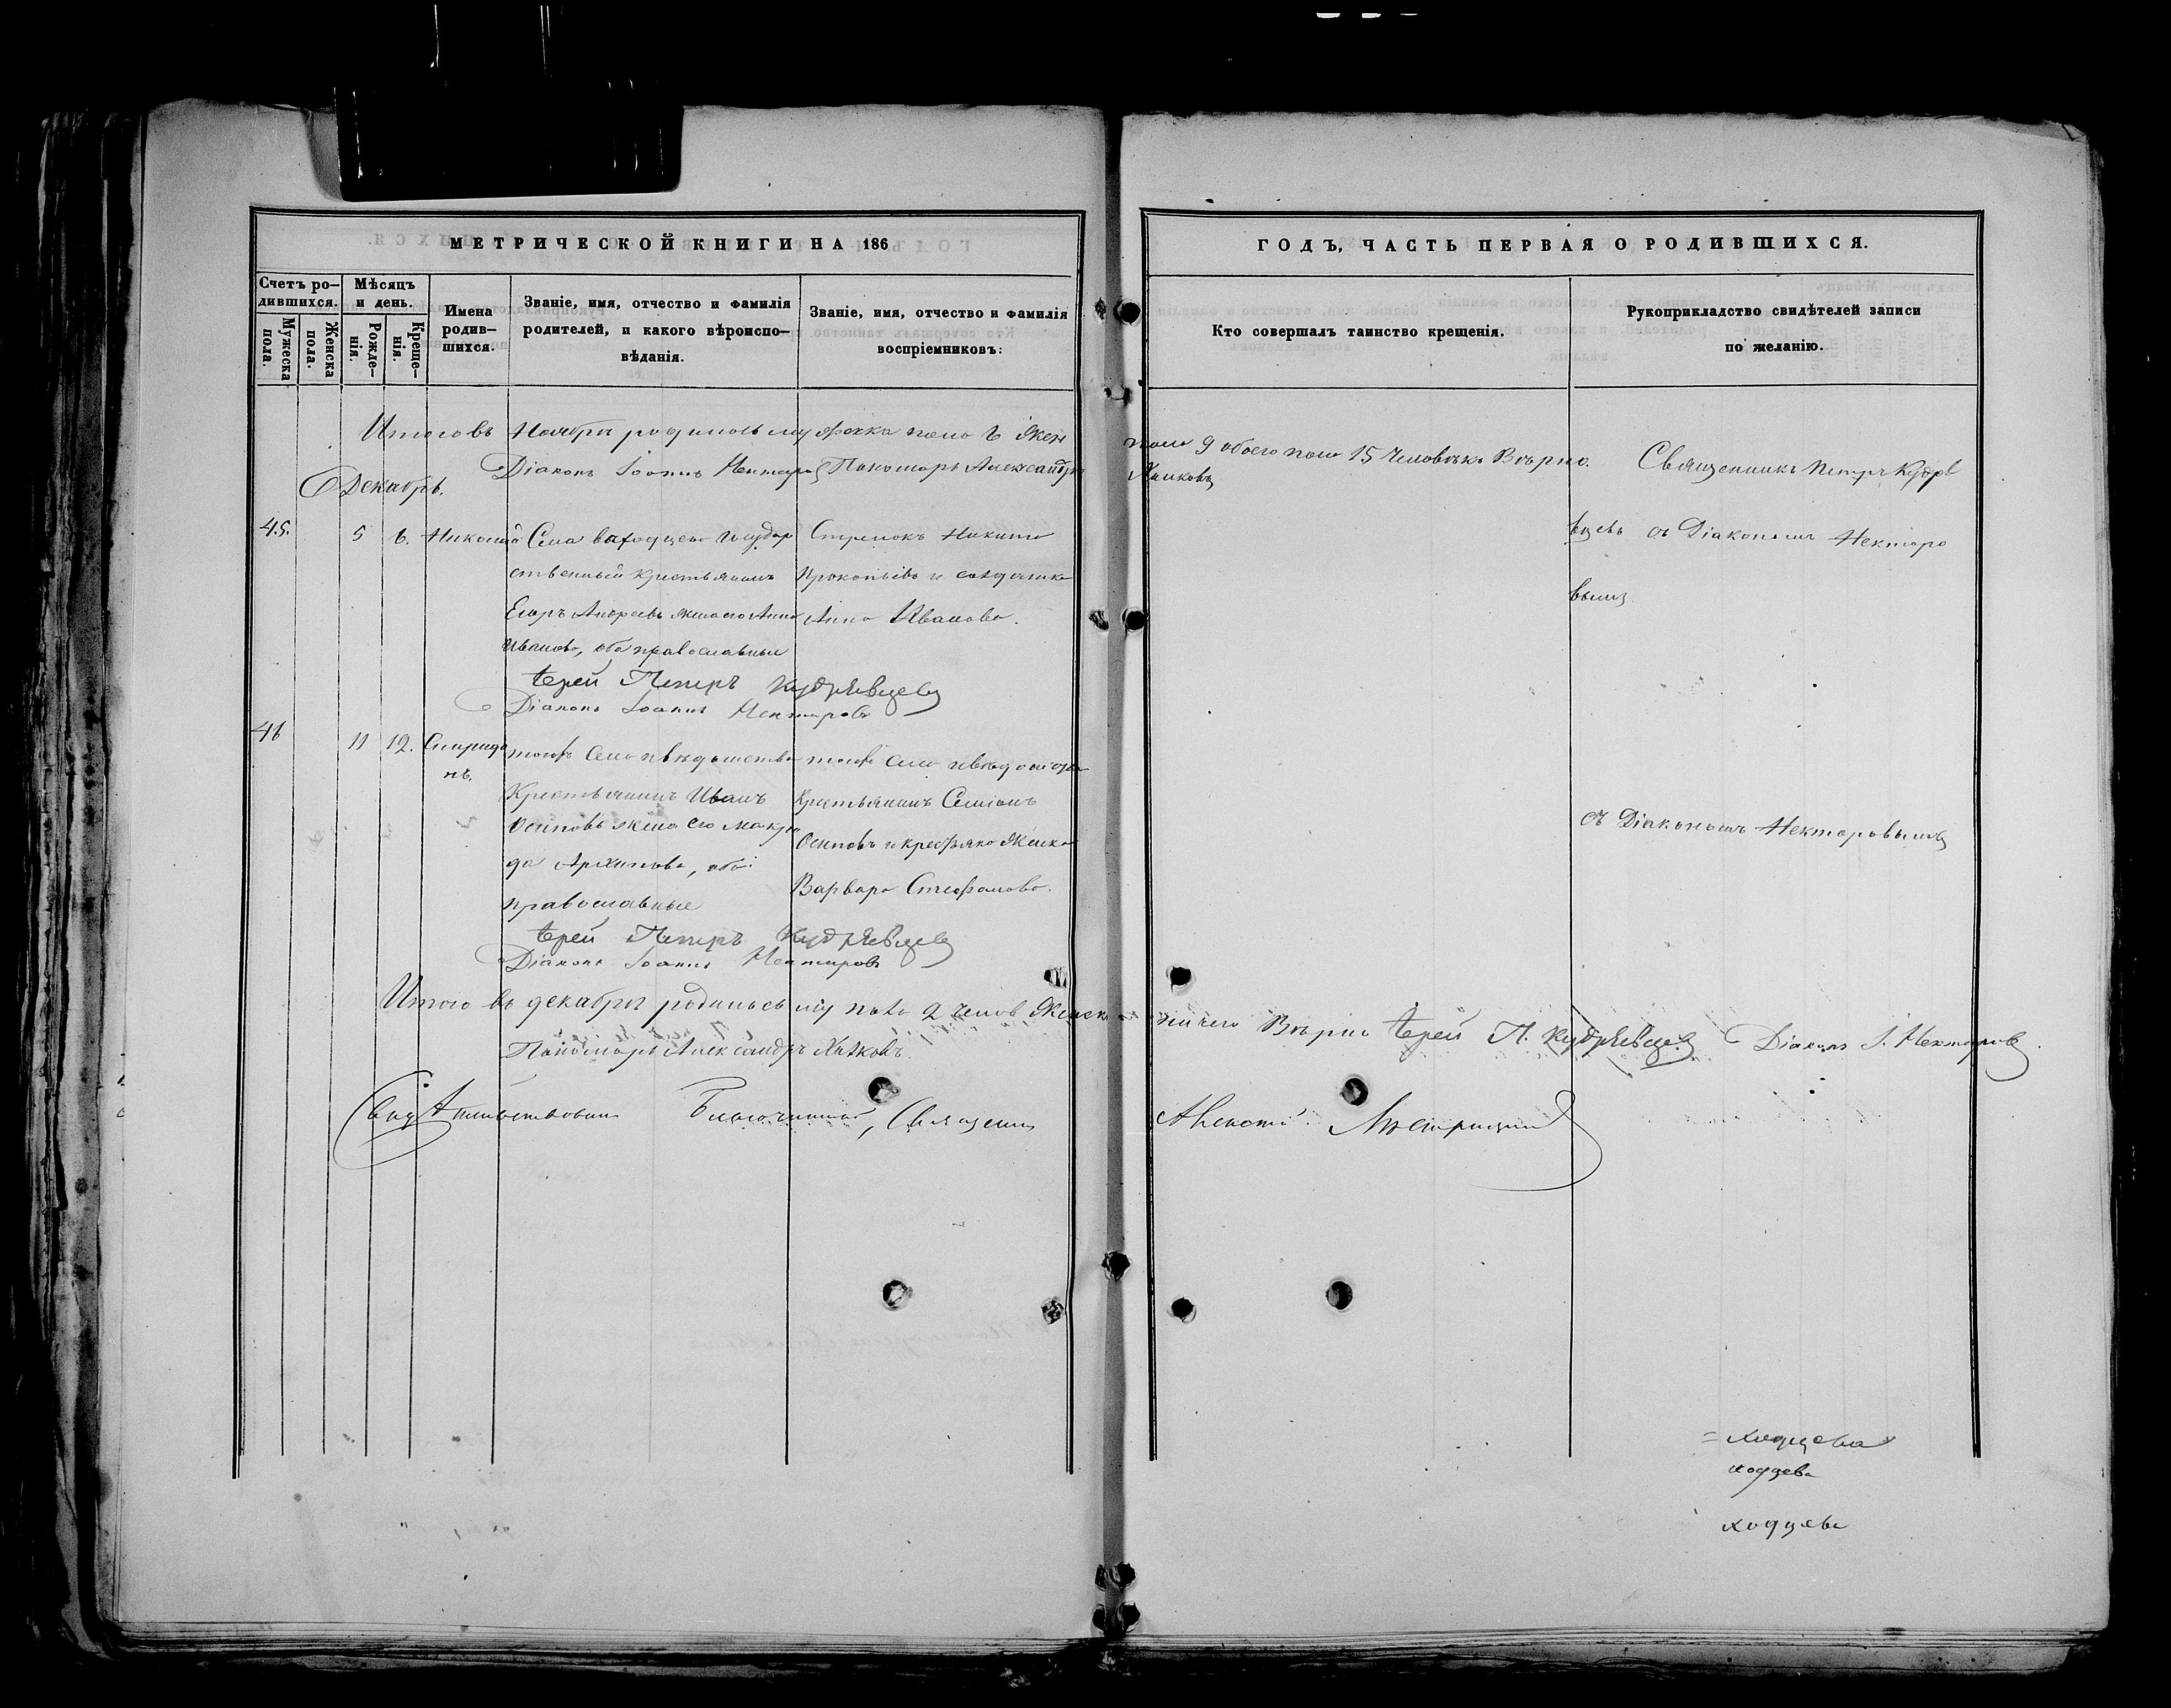 МЕТРИЧЕСКОЙ КНИГИ НА 186
ГОДЪ, ЧАСТЬ ПЕРВАЯ О РОДИВШИХСЯ.
Счетъ ро-
дившихся.
Мужеска
пола.
Женска
пола.
Мѣсяцъ
и день.
Рожде-
нія.
Креще-
нія.
Имена
родив-
шихся.
Званіе, имя, отчество и фамилія
родителей, и какого вѣроиспо-
вѣданія.
Званіе, имя, отчество и фамилія
воспріемниковъ:
Кто совершалъ таинство крещенія.
Рукоприкладство свидѣтелей записи
по желанію.
Итого въ Ноябрѣ родилось мужеска пола 6 жен
пола 9 обоего пола 15 Человѣкъ Вѣрно.
Діаконъ Іоаннъ Нектаровъ Пономарь Александръ
Декабрь.
45. 5 6. Николай
Села государ
ственный крестьянинъ
Егоръ Андреевъ жена его Анна
Иванова, оба православные
Никита
Прокопьевъ и солдатка
Анна Иванова.
Священникъ Петръ Кудряв
цевъ съ Діакономъ Нектаро
вымъ
Іерей Петръ Кудрявцевъ
Діаконъ Іоаннъ Нектаровъ
46 11 12. Спиридо
нъ.
тогожъ села и вѣдомства
Крестьянинъ Иванъ
Осиповъ жена его
Архипова, оба
православные
тогожъ села и вѣдомства
Крестьянинъ Семіонъ
Осиповъ и жонка
Варвара Стефанова.
съ Діакономъ Нектаровымъ
Іерей Петръ Кудрявцевъ
Діаконъ Іоаннъ Нектаровъ
Итого въ декабрѣ родилось муж пола 2 челов женска
ничего Вѣрно Іерей П. Кудрявцевъ Діаконъ І. Нектаровъ
Пономарь Александръ
Свидѣтельствовалъ Благочинный, Священ